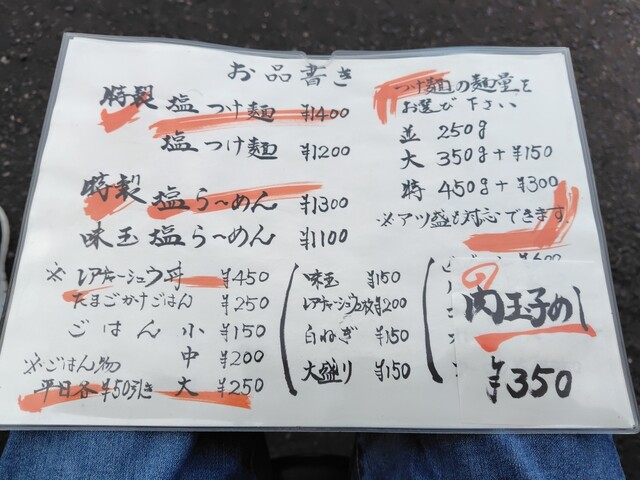 お品書き
特製 塩つけ麺 ¥1400
塩つけ麺 ¥1200
特製 塩らーめん ¥1300
味玉塩らーめん ¥1100
※レアチャーシュウ丼 ¥450
たまごかけごはん ¥250
ごはん 小 ¥150
中 ¥200
大 ¥250
※ごはん物
平日各¥50引き
味玉 ¥150
レアチャーシュウ2枚 ¥200
白ねぎ ¥150
大盛り ¥150
つけ麺の麺量を
お選び下さい
並 250g
大 350g+¥150
特 450g+¥300
※アツ盛も対応できます
肉玉子めし
¥350